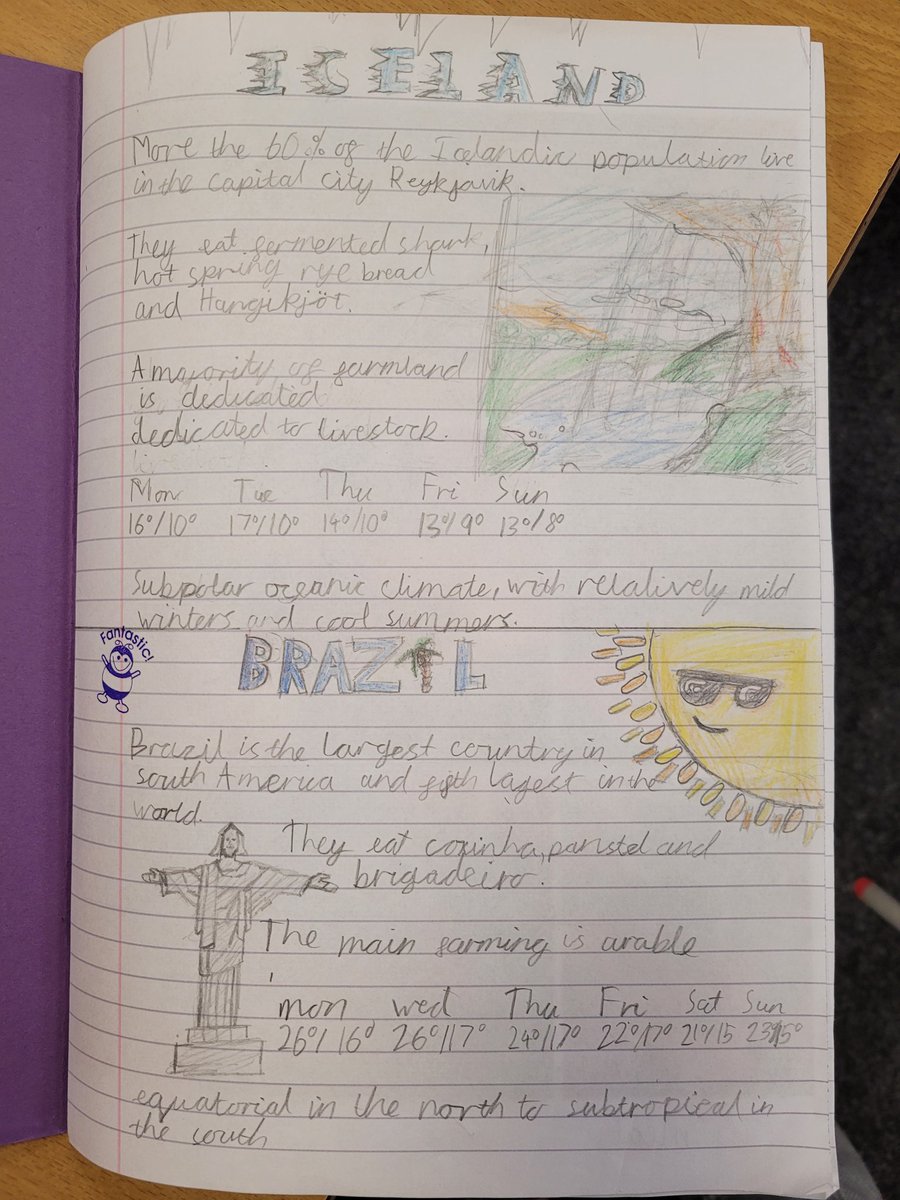 ICELAND
More the 60% of the Icelandic population live
in the capital city Reykjavik.
They eat fermented shark,
hot spring rye bread
and Hangikjöt.
A majority of farmland
is dedicated
dedicated to livestock.
Mon Tue Thu Fri Sun
16°/10° 17°/10° 14°/10° 13°/9° 13°/8°
Subpolar oceanic climate, with relatively mild
winters and cool summers.
Fantastic!
BRAZIL
Brazil is the largest country in
south America and fifth lagest in the
world.
They eat coxinha, panstel and
brigadeiro.
The main farming is arable
mon wed Thu Fri Sat Sun
26°/16° 26°/17° 24°/17° 22°/17° 21°/15 23°/15°
equatorial in the north to subtropical in
the south